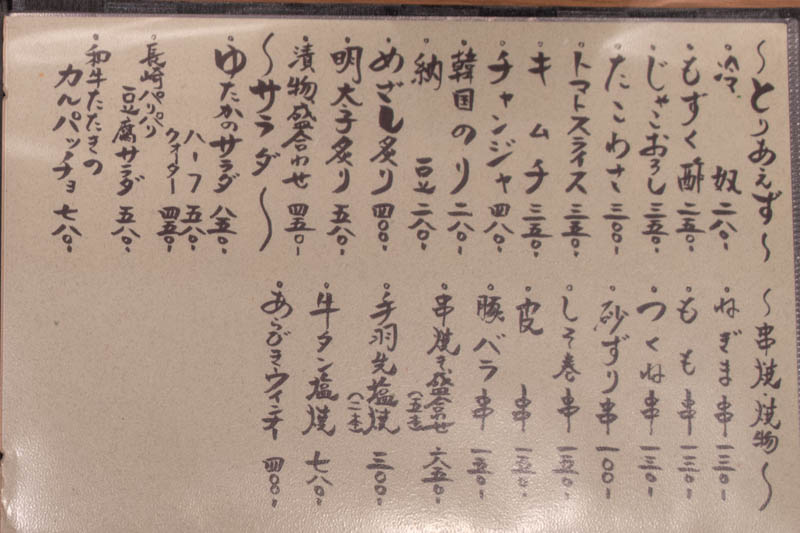 〜とりあえず〜
冷奴 二八〇-
もずく酢 二五〇-
じゃこおろし 三五〇-
たこわさ 三〇〇-
トマトスライス 三五〇-
キムチ 三五〇-
チャンジャ 四八〇-
韓国のり 二八〇-
納豆 二八〇-
めざし炙り 四〇〇-
明太子炙り 五八〇-
漬物盛合わせ 四五〇-
〜サラダ〜
ゆたかのサラダ 八五〇-
ハーフ 五八〇-
クォーター 四五〇-
長崎パリパリ
豆腐サラダ 五八〇-
和牛たたきの
カルパッチョ 七八〇-
〜串焼・焼物〜
ねぎま串 一三〇-
もも串 一三〇-
つくね串 一三〇-
砂ずり串 一〇〇-
しそ巻串 一五〇-
皮串 一五〇-
豚バラ串 一五〇-
串焼き盛合わせ(五本) 六五〇-
手羽先塩焼(二本) 三〇〇-
牛タン塩焼 七八〇-
あらびきウィンナー 四〇〇-